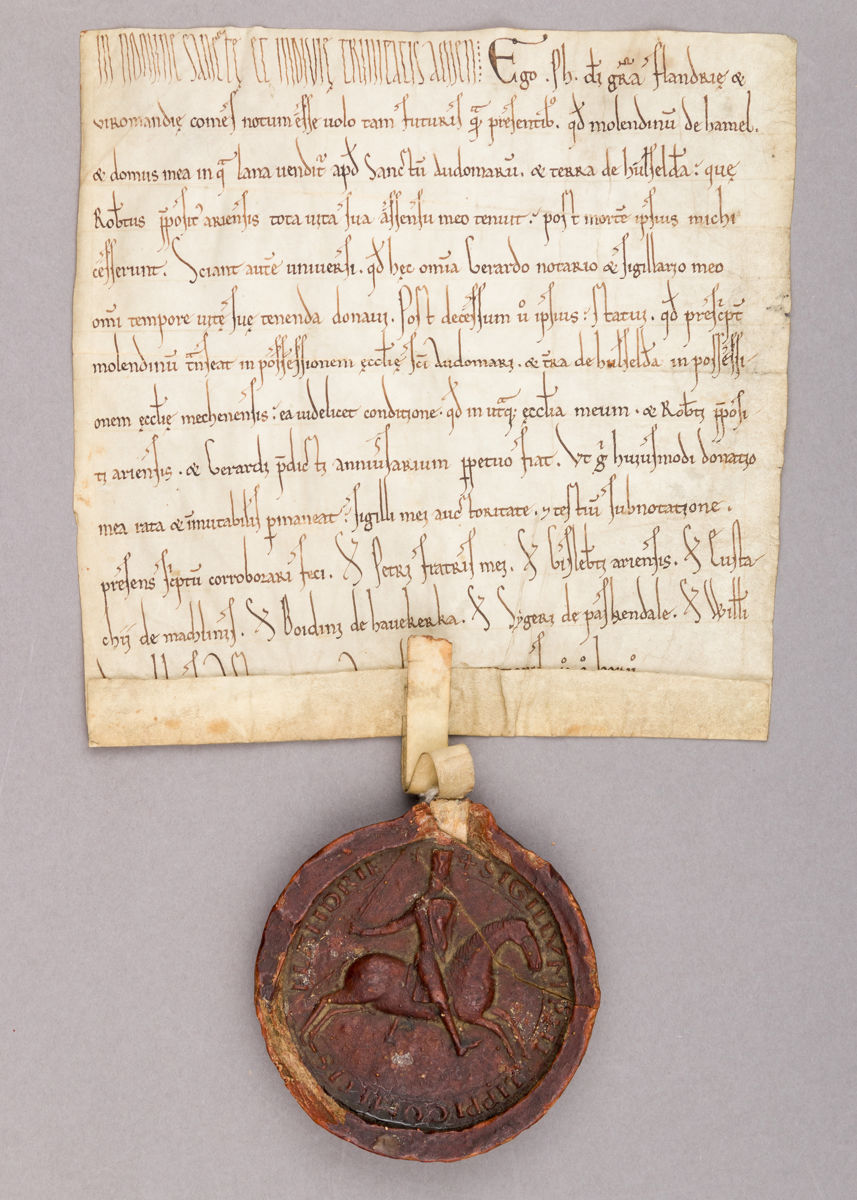 IN NOMINE SANCTĘ ET INDIVIĘ TRINITATIS AMEN Ego . Ph . dī grā flandrię &
viromandię comes notum esse uolo tam futuris qā presentib; . qd molendinū de hamel .
& domus mea in q lana uendit apd Sanctū Audomarū . & terra de hulselda : quę
Robtus pposit ariensis tota uita sua assensu meo tenuit . post morte ipsius michi
cesserunt . Sciant aute uniuersi . qd hęc omia Gerardo notario & sigillario meo
omi tempore uitę suę tenenda donaui . Post decessum u ipsius : statui . qd prescipt
molendinū tnseat in possessionem ęcclię sci Audomari . & tra de hulselda in possessi-
onem ęcclię mechenensis : ea uidelicet conditione . qd in utq; ęcclia meum . & Robti pposi-
ti ariensis . & Gerardi pdicti anniusarium ppetuo fiat . Ut g huiusmodi donatio
mea rata & inmutabilis pmaneat : sigilli mei auctoritate . & testiu subnotatione .
presens sciptū corroborari feci . S Petri fratris mei . S Gislebti ariensis . S Eusta-
chii de machlinis . S Boidini de hauekerka . S Sygeri de paskendale . S Willi
+ SIGILLVM PHILIPPI COMITIS FLANDRIE